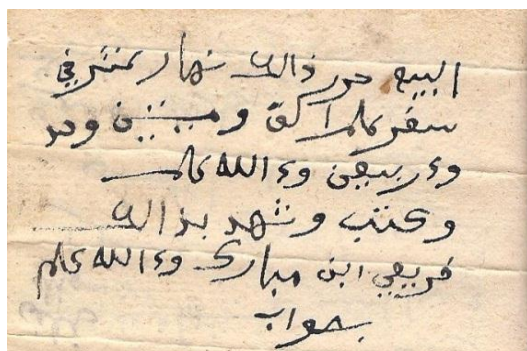 البيه حرر ذالك نهار في
سفر عام وميتين وحد
وءربعين وءالله عالم
وكتب وشهد بذالك
ابن مبارك وءالله علم
بصواب